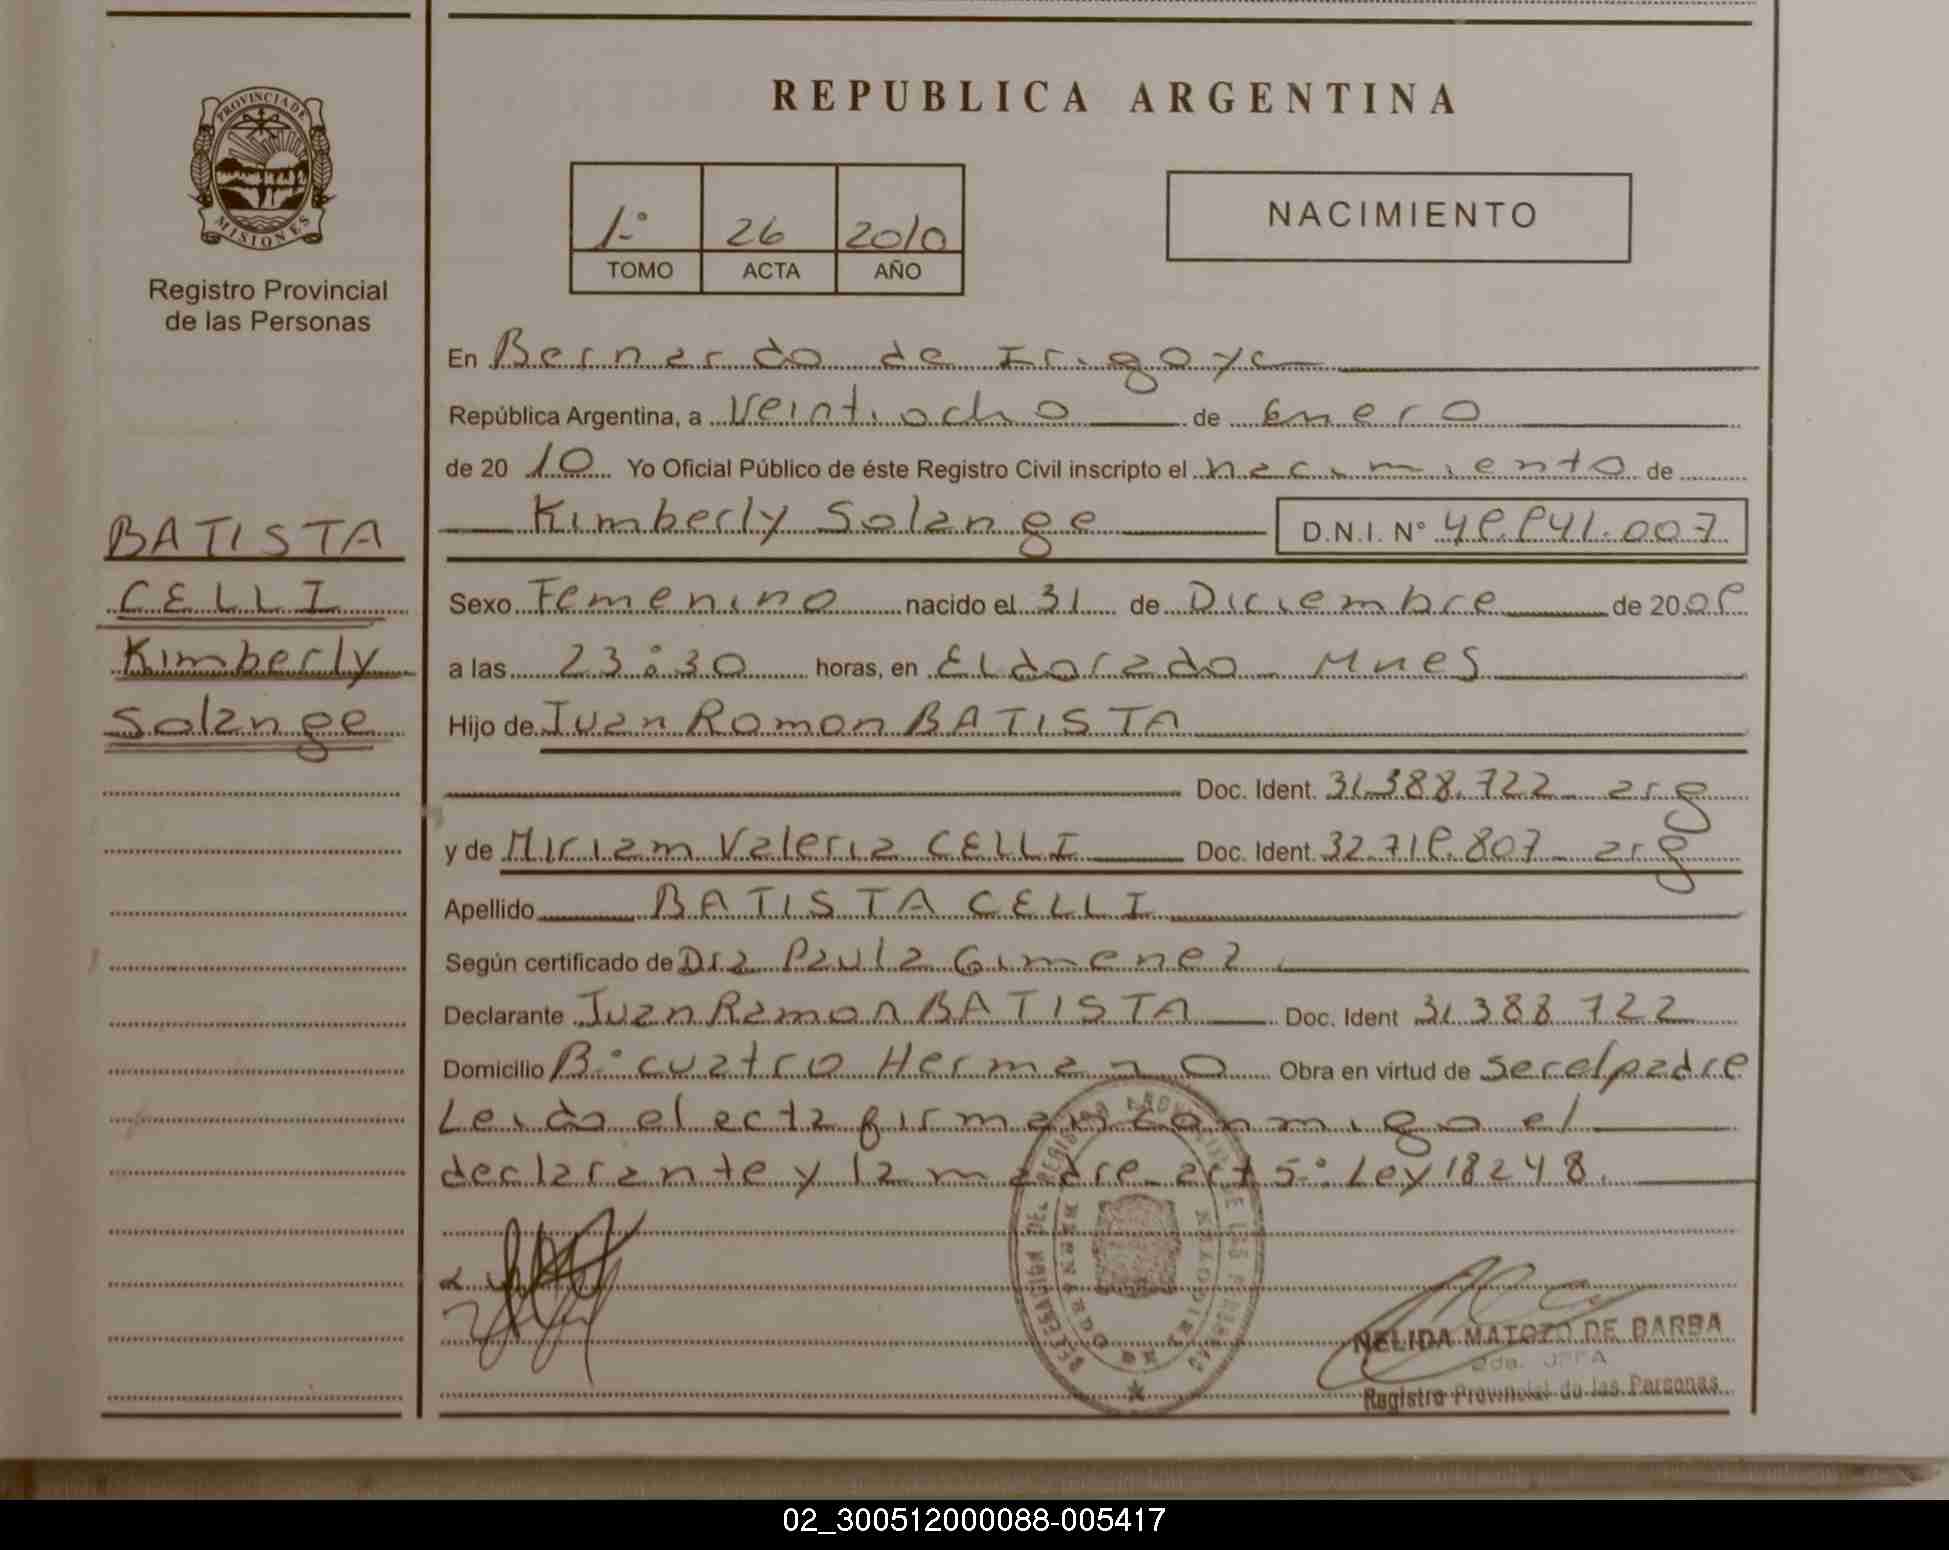 REPUBLICA ARGENTINA
PROVINCIA DE
MISIONES
Registro Provincial
de las Personas
1º 26 2010
TOMO ACTA AÑO
NACIMIENTO
BATISTA
CELLI
Kimberly
Solange
En Bernardo de Irigoye
República Argentina, a Veintiocho de Enero
de 20 10 Yo Oficial Público de éste Registro Civil inscripto el nacimiento de
Kimberly Solange D.N.I. Nº 49.941.007
Sexo Femenino nacido el 31 de Diciembre de 20 09
a las 23:30 horas, en Eldorado Mnes
Hijo de Juan Ramon BATISTA
Doc. Ident. 31.388.722 arg
y de Miriam Valeria CELLI Doc. Ident. 32.719.807 arg
Apellido BATISTA CELLI
Según certificado de Dra Paula Gimenez
Declarante Juan Ramon BATISTA Doc. Ident 31 388 722
Domicilio Bº cuatro Hermano Obra en virtud de ser el padre
Leido el acta firman conmigo el
declarante y la madre art 5º Ley 18248.
NELIDA MATOZO DE BARBA
Registro Provincial de las Personas
02_300512000088-005417